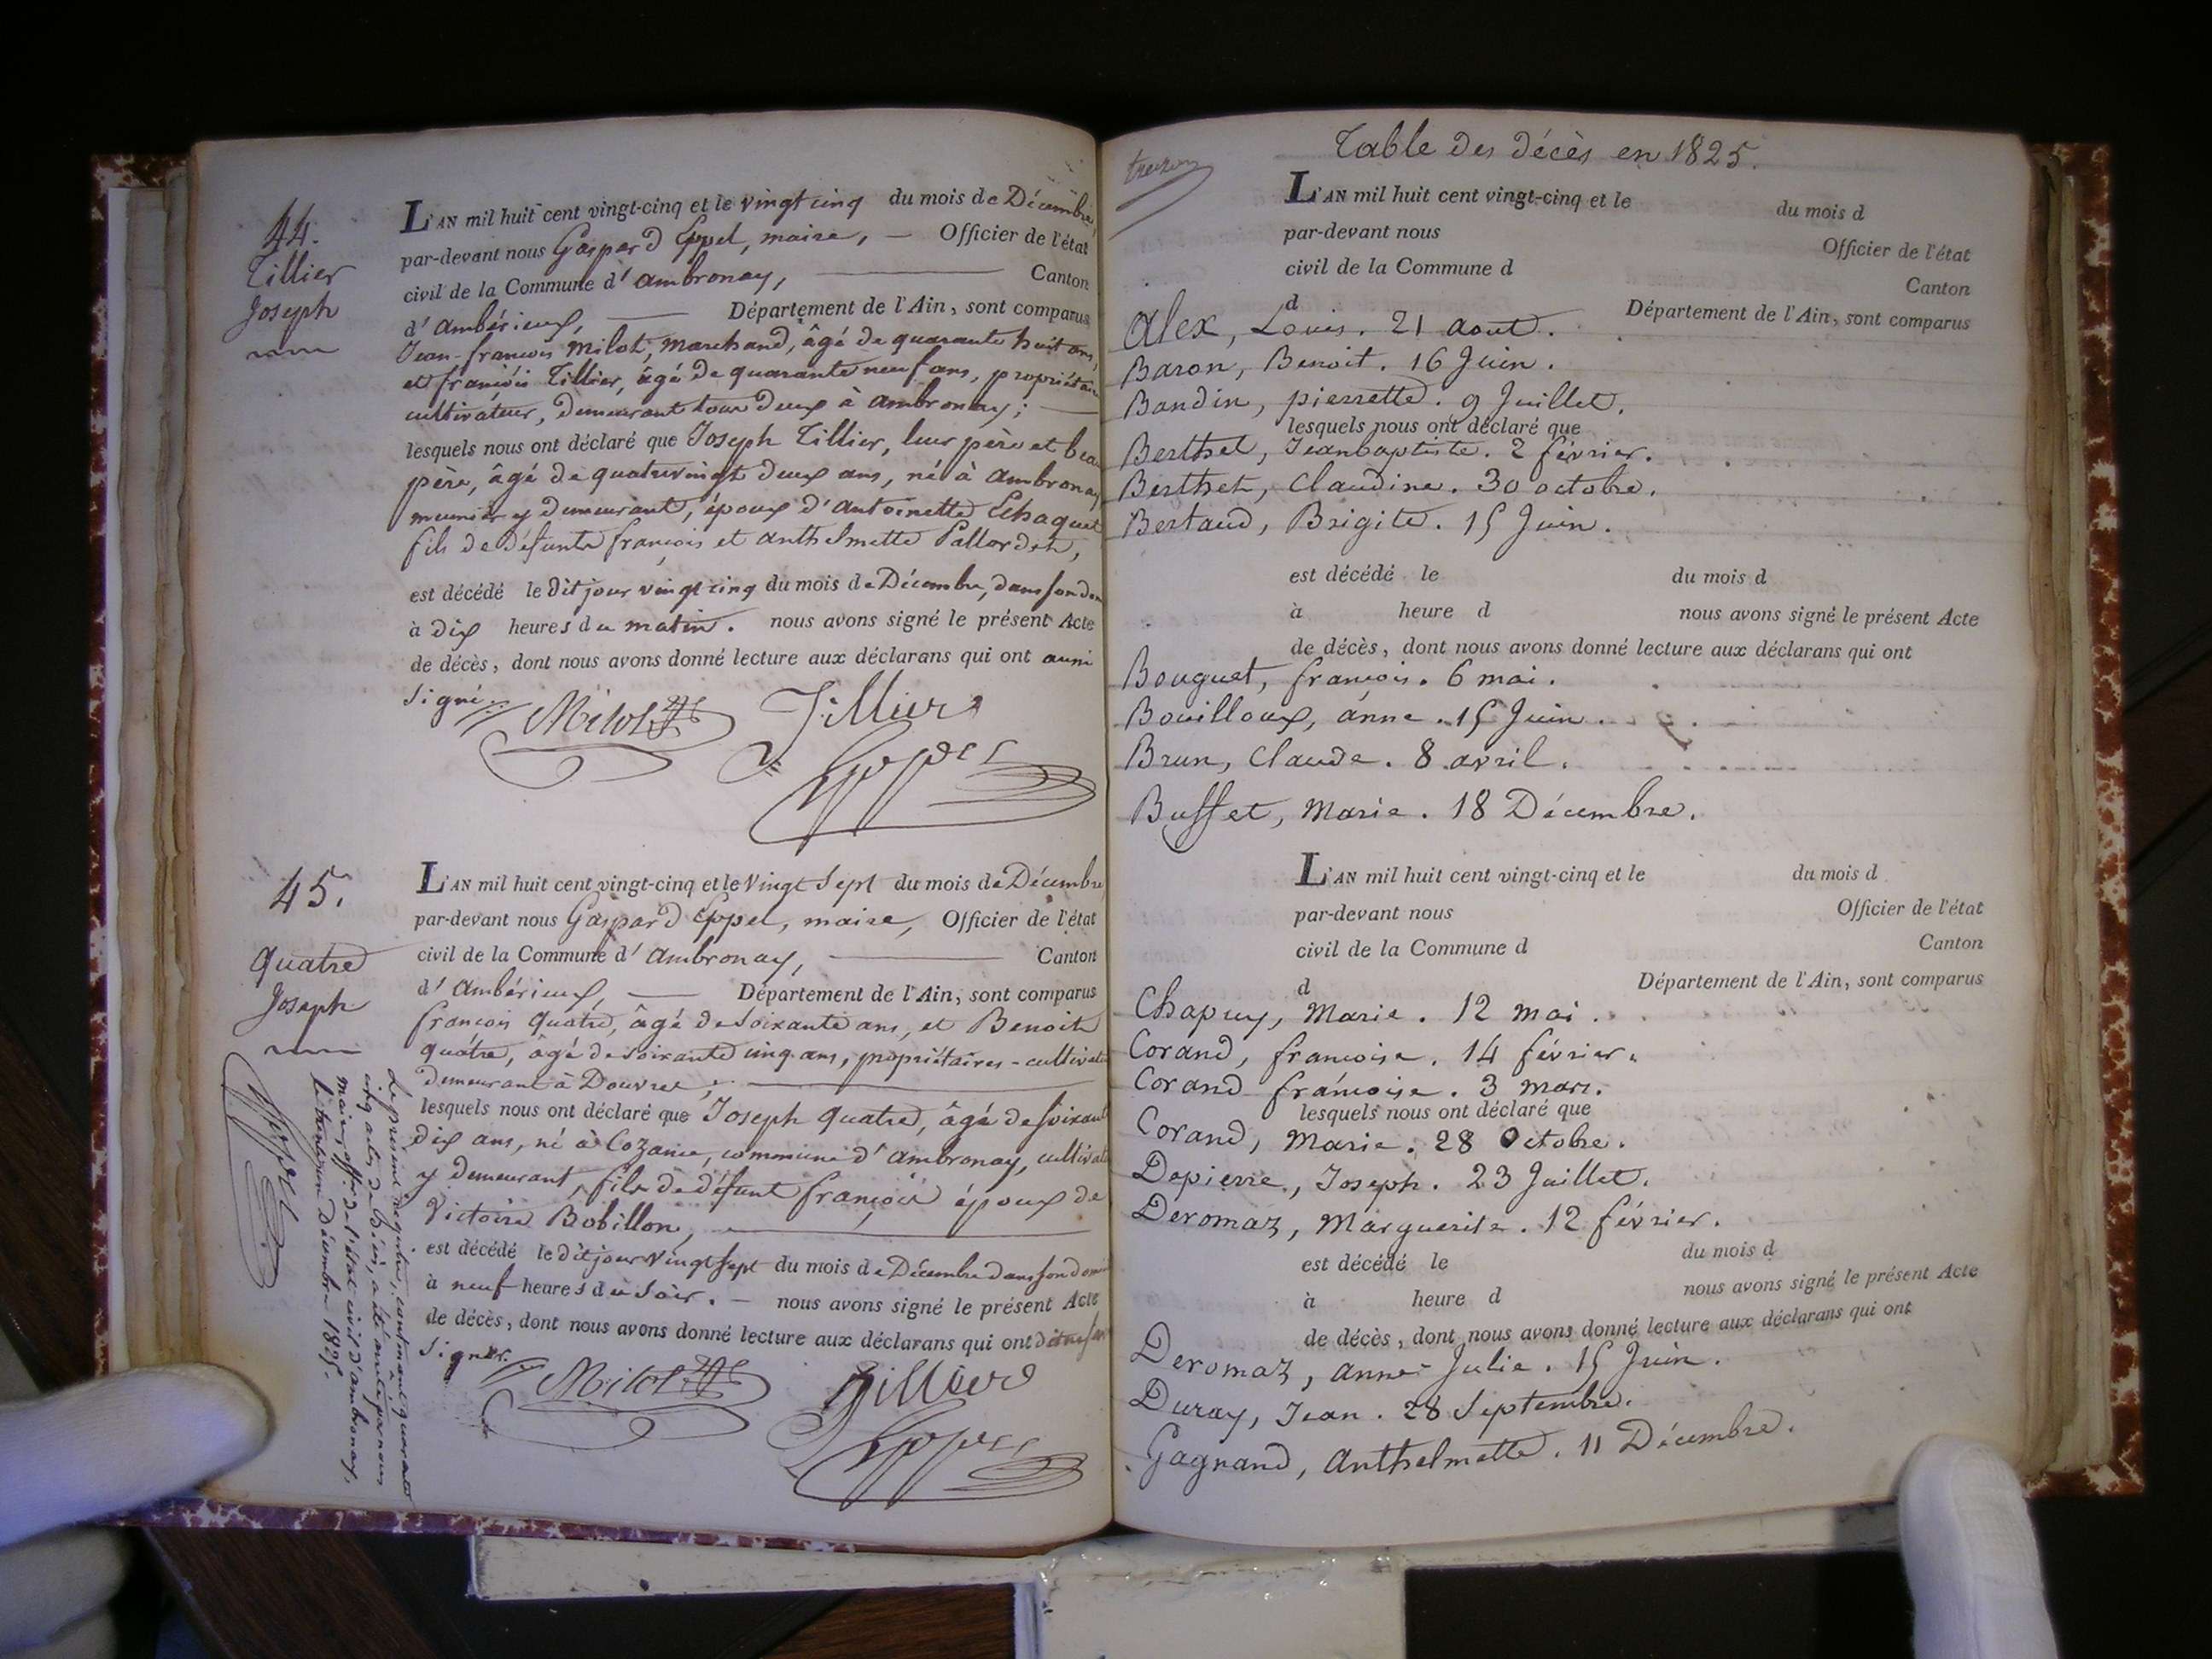 44.
Tillier
Joseph
L'AN mil huit cent vingt-cinq et le vingt cinq du mois de Décembre
par-devant nous Gaspard Eppel, maire, — Officier de l'état
civil de la Commune d'ambronay, — Canton
d'ambérieux, — Département de l'Ain, sont comparus
Jean-françois Milot, marchand, âgé de quarante huit ans,
et françois Tillier, âgé de quarante neuf ans, propriétaire
cultivateur, demeurant tous deux à ambronay; —
lesquels nous ont déclaré que Joseph Tillier, leur père et beau
père, âgé de quatrevingt deux ans, né à ambronay
meunier y demeurant, époux d'antoinette
fils de défunts françois et anthelmette
est décédé le dit jour vingt cinq du mois de Décembre, dans son dom
à dix heures du matin. nous avons signé le présent Acte
de décès, dont nous avons donné lecture aux déclarans qui ont aussi
signé.
Milot Tillier
Eppel
45.
quatre
Joseph
L'AN mil huit cent vingt-cinq et le vingt sept du mois de Décembre
par-devant nous Gaspard Eppel, maire, Officier de l'état
civil de la Commune d'ambronay, — Canton
d'ambérieux, — Département de l'Ain, sont comparus
françois quatre, âgé de soixante ans, et Benoit
quatre, âgé de soixante cinq ans, propriétaires-cultivate
demeurant à Douvres; —
lesquels nous ont déclaré que Joseph quatre, âgé de soixante
dix ans, né à Cozance, commune d'ambronay, cultivate
y demeurant, fils de défunt françois époux de
Victoire Bobillon, —
est décédé le dit jour vingt sept du mois de Décembre dans son domi
à neuf heures du soir. — nous avons signé le présent Acte
de décès, dont nous avons donné lecture aux déclarans qui ont dit ne savoir
signer.
Milot Tillier
Eppel
Le présent registre, contenant quarante
cinq actes de décès, a été arrêté par nous
maire, off.er de l'état civil d'ambronay,
le trente un Décembre 1825.
Eppel
Table des décès en 1825.
L'AN mil huit cent vingt-cinq et le du mois d
par-devant nous Officier de l'état
civil de la Commune d Canton
d Département de l'Ain, sont comparus
Alex, Louis. 21 aout.
Baron, Benoit. 16 Juin.
Bandin, pierrette. 9 Juillet.
lesquels nous ont déclaré que
Berthet, Jeanbaptiste. 2 février.
Berthet, Claudine. 30 octobre.
Bertaud, Brigite. 15 Juin.
est décédé le du mois d
à heure d nous avons signé le présent Acte
de décès, dont nous avons donné lecture aux déclarans qui ont
Bouguet, françois. 6 mai.
Bouilloux, anne. 15 Juin.
Brun, Claude. 8 avril.
Buffet, Marie. 18 Décembre.
L'AN mil huit cent vingt-cinq et le du mois d
par-devant nous Officier de l'état
civil de la Commune d Canton
d Département de l'Ain, sont comparus
Chapuy, Marie. 12 mai.
Corand, francoise. 14 février.
Corand françoise. 3 mars.
lesquels nous ont déclaré que
Corand, Marie. 28 Octobre.
Depierre, Joseph. 23 Juillet.
Deromaz, Marguerite. 12 février.
est décédé le du mois d
à heure d nous avons signé le présent Acte
de décès, dont nous avons donné lecture aux déclarans qui ont
Deromaz, anne Julie. 15 Juin.
Duray, Jean. 28 Septembre.
Gagnand, Anthelmette. 11 Décembre.